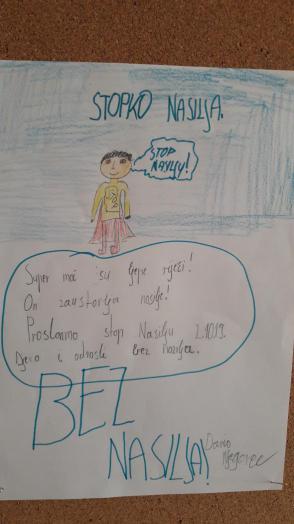 STOPKO NASILJA.
STOP
NASILJU!
Super moć su ljepe riječi!
On zaustavlja nasilje!
Proslavimo stop Nasilju 2.10.19.
Djeco i odrasli brez nasilja.
BEZ
NASILJA!
Dario